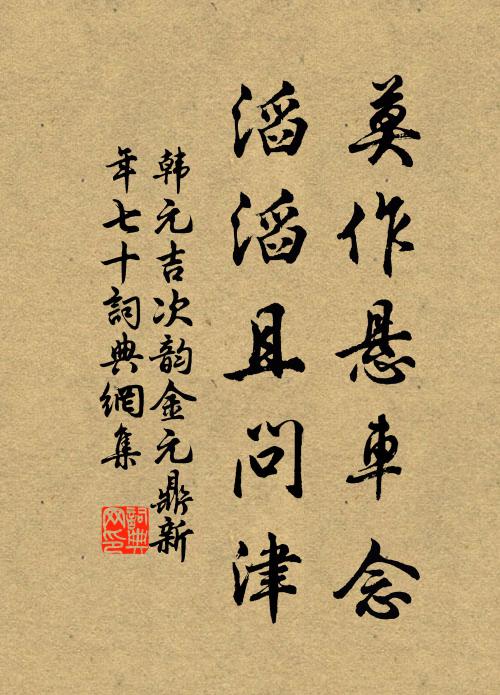 莫作悬車念
滔滔且问津
韩元吉次韵金元鼎新
年七十詞典網集
詞典
网印